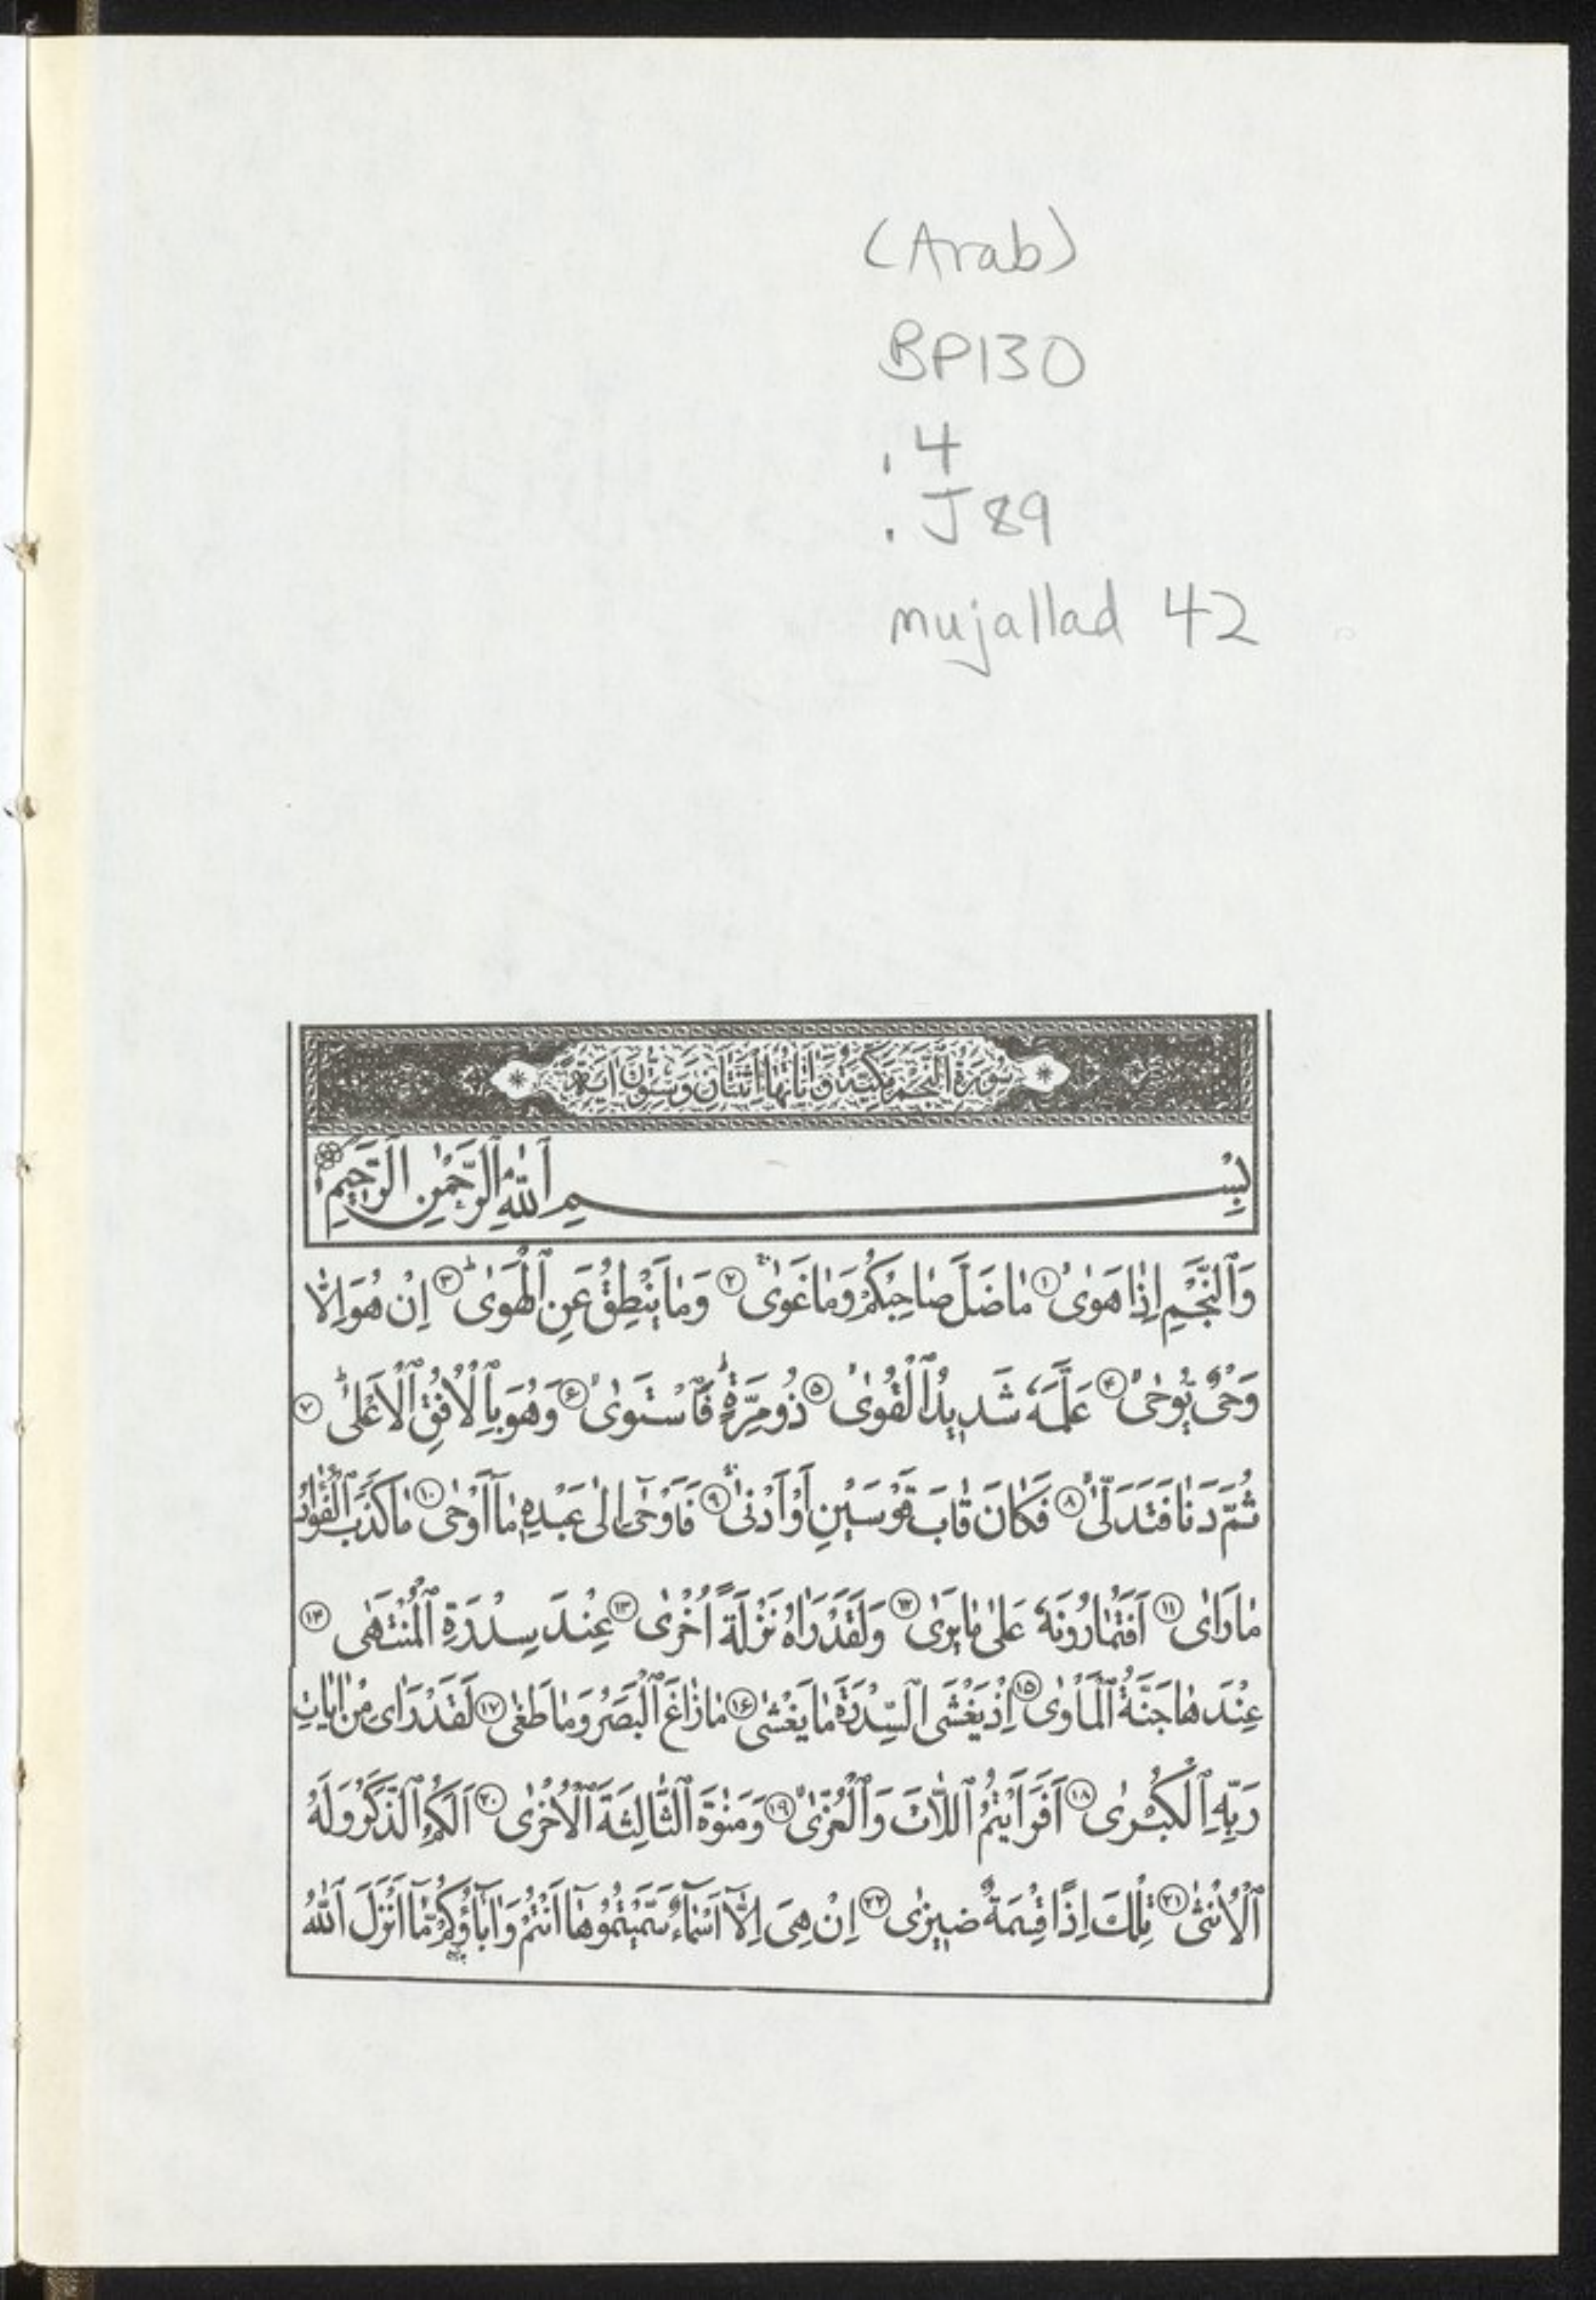 (Arab)
BP130
.4
.J89
mujallad 42
سُورَةُ النَّجْمِ مَكِّيَّةٌ وَاٰيَاتُهَا اثْنَتَانِ وَسِتُّونَ اٰيَةً
بِسْمِ ٱللّٰهِ ٱلرَّحْمٰنِ ٱلرَّحِيمِ
وَٱلنَّجْمِ اِذٰا هَوىٰ ۱ مٰا ضَلَّ صٰاحِبُكُمْ وَمٰا غَوىٰ ۲ وَمٰا يَنْطِقُ عَنِ ٱلْهَوىٰ ۳ اِنْ هُوَ اِلّٰا
وَحْىٌ يُوحىٰ ۴ عَلَّمَهُ شَدِيدُ ٱلْقُوىٰ ۵ ذُو مِرَّةٍ فَٱسْتَوىٰ ۶ وَهُوَ بِالْاُفُقِ ٱلْاَعْلىٰ ۷
ثُمَّ دَنٰا فَتَدَلّىٰ ۸ فَكٰانَ قٰابَ قَوْسَيْنِ اَوْ اَدْنىٰ ۹ فَاَوْحىٰ اِلىٰ عَبْدِهِ مٰا اَوْحىٰ ۱۰ مٰا كَذَبَ ٱلْفُؤٰادُ
مٰا رَاىٰ ۱۱ اَفَتُمٰارُونَهُ عَلىٰ مٰا يَرىٰ ۱۲ وَلَقَدْ رَاٰهُ نَزْلَةً اُخْرىٰ ۱۳ عِنْدَ سِدْرَةِ ٱلْمُنْتَهىٰ ۱۴
عِنْدَهٰا جَنَّةُ ٱلْمَاْوىٰ ۱۵ اِذْ يَغْشَى ٱلسِّدْرَةَ مٰا يَغْشىٰ ۱۶ مٰا زٰاغَ ٱلْبَصَرُ وَمٰا طَغىٰ ۱۷ لَقَدْ رَاىٰ مِنْ اٰيٰاتِ
رَبِّهِ ٱلْكُبْرىٰ ۱۸ اَفَرَاَيْتُمُ ٱللّٰاتَ وَٱلْعُزّىٰ ۱۹ وَمَنٰوةَ ٱلثّٰالِثَةَ ٱلْاُخْرىٰ ۲۰ اَلَكُمُ ٱلذَّكَرُ وَلَهُ
ٱلْاُنْثىٰ ۲۱ تِلْكَ اِذًا قِسْمَةٌ ضِيزىٰ ۲۲ اِنْ هِىَ اِلّٰا اَسْمٰاءٌ سَمَّيْتُمُوهٰا اَنْتُمْ وَاٰبٰاؤُكُمْ مٰا اَنْزَلَ ٱللّٰهُ